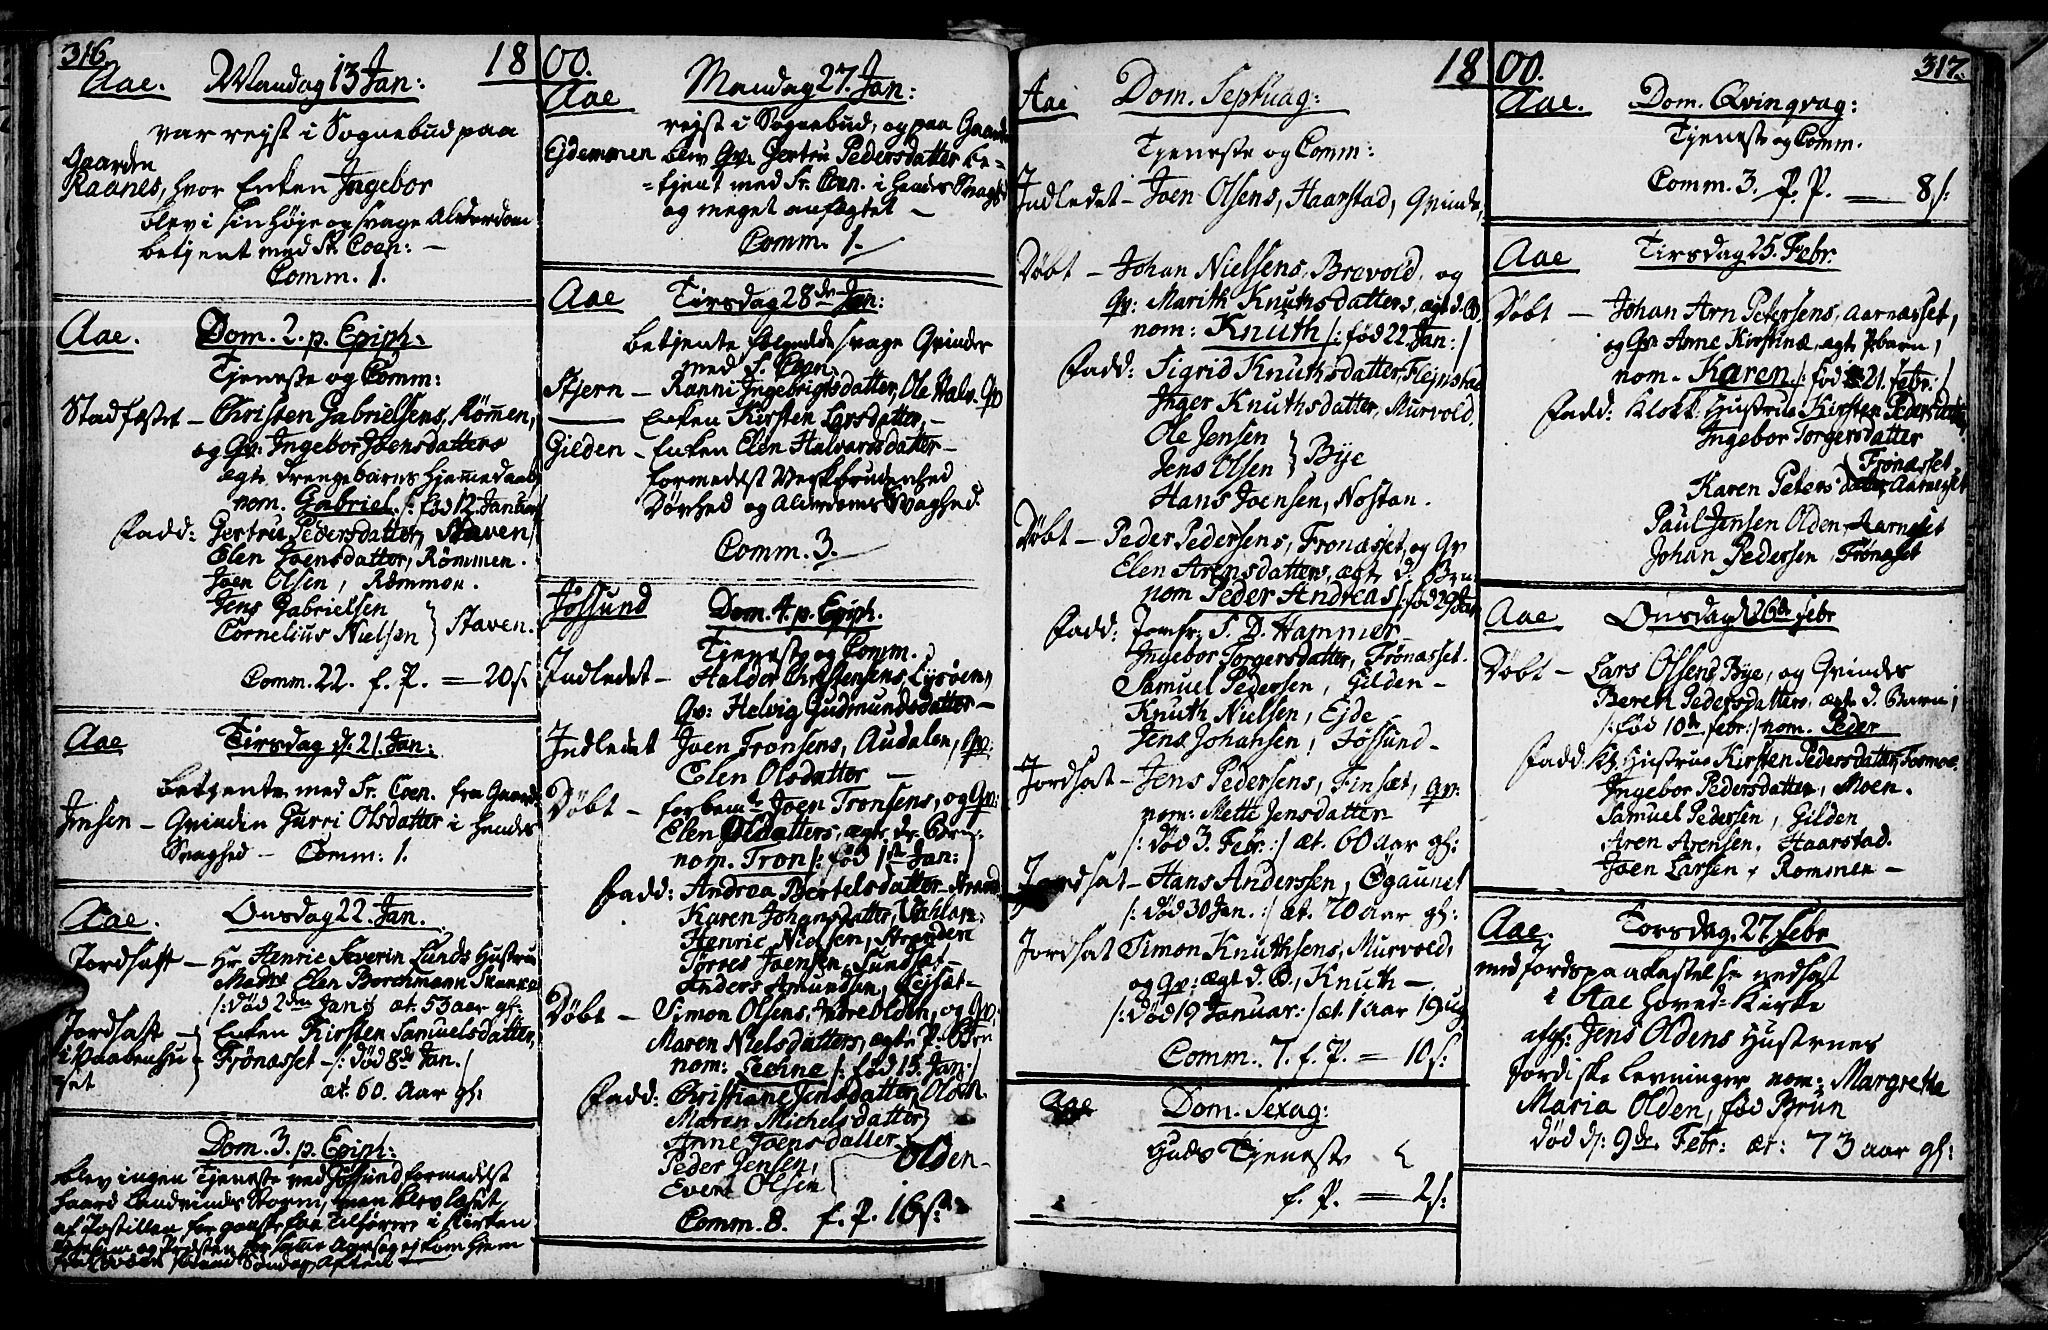 316. 18
Aae. Mandag 13 Jan:
var rejst i Sognebud paa
Gaarden
Raanes, hvor Enken Ingebor
blev i sin høje og svage Alderdom
betjent med Sr. Coen: –
Comm. 1.
Aae. Dom. 2. p. Epiph.
Tjeneste og Comm:
Stadfæstet – Christen Gabrielsens, Römmen,
og Qv: Ingebor Joensdatters
ægte Drengebarns Hjemmedaab
nom. Gabriel /: fød 12 Januar
Fadd: Gertru Pedersdatter, Staven
Elen Joensdatter, Römmen.
Joen Olsen, Römmen.
Jens Gabrielsen
Cornelius Nielsen } Staven.
Comm. 22. f. P. = 20 s.
Aae Tirsdag d. 21. Jan:
betjente med Sr. Coen. fra Gaard
Jensen – Qvinden Gurri Olsdatter i hendes
Svaghed – Comm: 1.
Aae. Onsdag 22. Jan.
Jordfæst – Hr. Henric Severin Lunds Hustrue
Madme Elen Borchmann
/: død 2den Jan: æt. 53 aar gl:
Jordfæst – Enken Kirsten Samuelsdatter,
i Vaabenhu Frönæsset – /: død 8de Jan. /
set æt. 60. Aar gl:
Dom. 3. p. Epiph:
blev ingen Tjeneste ved Jössund, formedelst
haard Landvinds Storm, men blev læset
af Postillen for ganske faa Tilhörere i Kirken
Søndag Aften
00.
Aae Mandag 27. Jan:
rejst i Sognebud, og paa Gaarden
Ejdemmen blev Qv. Gertru Pedersdatter be-
=tjent med Sr. Coen. i hendes Svagh:
og meget anfægtet –
Comm. 1. –
Aae Tirsdag 28de Jan:
betjente følgende svage Qvinder
med S. Coen:
Stjern – Ranni Ingebrigtsdatter, Ole Halv. Qv
— Enken Kirsten Larsdatter, –
Gilden – Enken Elen Halvorsdatter –
formedelst Verkbrudenhed
Dövhed og Alderdoms Svaghed.
Comm. 3. –
Jössund Dom. 4. p. Epiph.
Tjeneste og Comm.
Indledet – Haldor Christensens, Lysöen,
Qv: Helvig Gudmundsdatter –
Indledet Joen Tronsens, Audalen, Qv:
Elen Olsdatter –
Døbt – forbemte Joen Tronsens, og Qv:
Elen Olsdatters, ægte Dr. Barn:
nom. Tron /: fød 1ste Jan: /
Fadd: Andrea Bertelsdatter Strand
Karen Johansdatter,
Henric Nielsen, Stranden
Törres Joensen, Sundsæt –
Anders Amundsen, Rejsæt –
Døbt – Simon Olsens, Ydre Olden, og Qv:
Maren Nielsdatters, ægte P. Barn
nom: Leene /: fød 15. Jan: /
Fadd: Christiane Jensdatter, Olden.
Maren Michelsdatter
Anne Joensdatter
Peder Jensen,
Evert Olsen } Olden –
Comm. 8. f. P. 16 s:
18
Aae Dom. Septuag:
Tjeneste og Comm:
Indledet – Joen Olsens, Haarstad, Qvinde,
Döbt – Johan Nielsens, Brøvold, og
Qv: Marith Knuthsdatters, ægt d. B.
nom: Knuth /: fød 22. Jan: /
Fadd: Sigrid Knuthsdatter, Flejnstad
Inger Knuthsdatter, Murvold.
Ole Jensen
Jens Olsen } Bye
Hans Joensen, Nøstan.
Döbt – Peder Pedersens, Fronæsset, og Qv
Elen Arensdatters, ægte d. Barn:
nom Peder Andreas /: fød 29 Jan
Fadd: Jomfr: S. D. Hammer
Ingebor Torgersdatter, Frönæsset.
Samuel Pedersen, Gilden –
Knuth Nielsen, Ejde –
Jens Johansen, Jössund –
Jordfæt – Jens Pedersens, Finsæt, Qv:
nom: Mette Jensdatter
/: død 3. Febr. :/ æt. 60 aar gl:
Jordfæt – Hans Anderssen, Øgaunet
/: død 30 Jan. :/ æt. 70 aar gl:
Jordfæt Simon Knuthsens, Murvold,
og Qv: ægt d. B., Knuth –
/: død 19 Januar: / æt. 1 aar 19 ug
Comm. 7. f. P. = 10 s:
Aae Dom. Sexag:
Guds Tjeneste
f. P. = 2 s:
00. 317.
Aae. Dom. Qvingvag:
Tjeneste og Comm.
Comm. 3. f. P. — 8 s:
Aae Tirsdag 25. Febr.
Döbt – Johan Arn Petersens, Aarnæsset,
og Qv Anne Kirstinæ, ægte P. barn,
nom. Karen /: fød 21. febr: /
Fadd: Klokk: Hustrue Kirsten Pedersdatter
Ingebor Torgersdatter
Frönæsset
Karen Petersdatter, Aarnæset
Paul Jensen Olden, Aarneset
Johan Pedersen, Frönæset
Aae Onsdag 26de febr
Döbt – Lars Olsens, Bye, og Qvindes
Beret Pedersdatters, ægte d. Barn,
/: fød 10de febr: / nom. Peder
Fadd: Kl. Hustrue Kirsten Pedersdatter,
Ingebor Pedersdatter, Moen.
Samuel Pedersen, Gilden
Aren Arensen, Haarstad.
Joen Larsen, Rommen –
Aae. Torsdag 27. Febr
med Jordspaakastelse nedsat
i Aae Hoved-Kirke
afg: Jens Oldens Hustrues
Jordiske levninger nom: Margrethe
Maria Olden, fød Brün
død d: 9de Febr: æt: 73 aar gl: